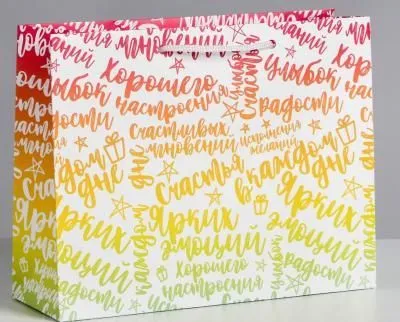 мгновений
Улыбок
Хорошего
настроения
Улыбок
Счастья
желаний
Улыбок
радости
Счастливых
мгновений
Исполнения
желаний
в каждом
дне
Счастья
в каждом
дне
Ярких
эмоций
Ярких
эмоций
Хорошего
настроения
Счастья
радости